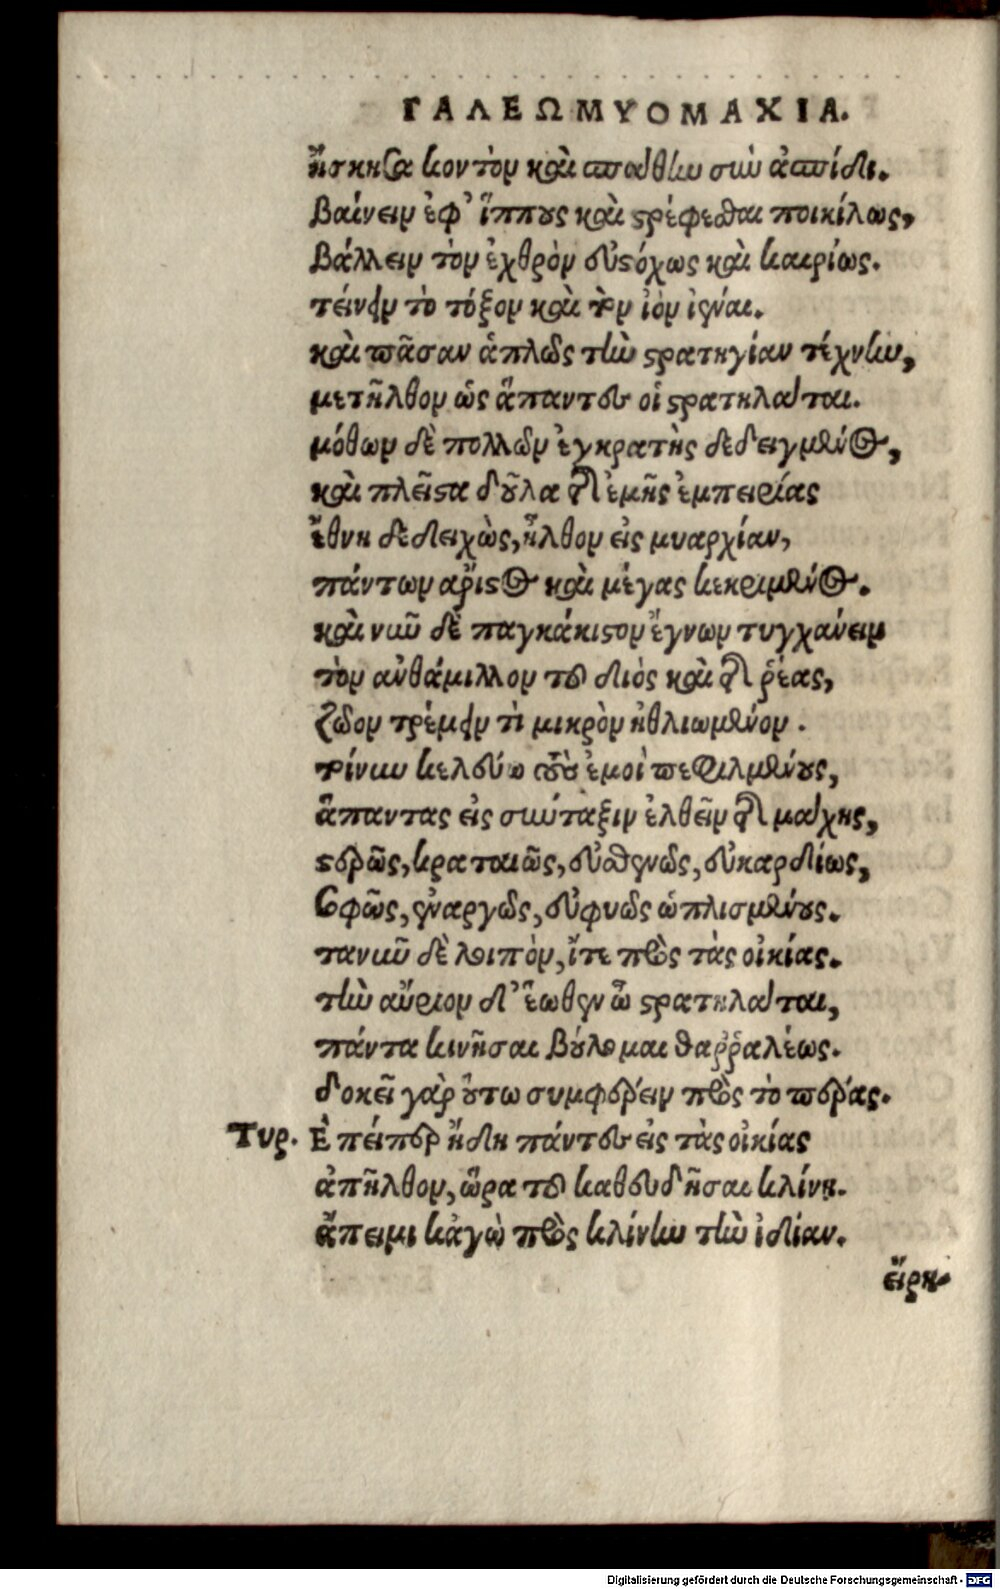 ΓΑΛΕΩΜΥΟΜΑΧΙΑ.
ἤσκησα κοντὸν καὶ σπάθην σὺν ἀσπίδι.
βαίνειν ἐφ' ἵππους καὶ στρέφεσθαι ποικίλως,
βάλλειν τὸν ἐχθρὸν εὐστόχως καὶ καιρίως.
τείνειν τὸ τόξον καὶ τὸν ἰὸν ἰέναι.
καὶ πᾶσαν ἁπλῶς τὴν στρατηγίαν τέχνην,
μετῆλθον ὡς ἅπαντες οἱ στρατηλάται.
μόθων δὲ πολλῶν ἐγκρατὴς δεδειγμένος,
καὶ πλεῖστα δοῦλα τῆς ἐμῆς ἐμπειρίας
ἔθνη δεδειχὼς, ἦλθον εἰς μυαρχίαν,
πάντων ἄριστος καὶ μέγας κεκριμένος.
καὶ νῦν δὲ παγκάκιστον ἔγνων τυγχάνειν
τὸν ἀνθάμιλλον τοῦ διὸς καὶ τῆς ῥέας,
ζῶον τρέμειν τὶ μικρὸν ἠθλιωμένον.
τοίνυν κελεύω τοὺς ἐμοὶ πεφιλμένους,
ἅπαντας εἰς σύνταξιν ἐλθεῖν τῆς μάχης,
στερρῶς, κραταιῶς, εὐσθενῶς, εὐκαρδίως,
σοφῶς, ἐναργῶς, εὐφυῶς ὡπλισμένους.
τανῦν δὲ λοιπὸν, ἴτε πρὸς τὰς οἰκίας.
τὴν αὔριον δ' ἕωθεν ὦ στρατηλάται,
πάντα κινῆσαι βούλομαι θαῤῥαλέως.
δοκεῖ γὰρ οὕτω συμφέρειν πρὸς τὸ πέρας.
Τυρ. Ἐπείπερ ἤδη πάντες εἰς τὰς οἰκίας
ἀπῆλθον, ὥρα τοῦ καθευδῆσαι κλίνῃ.
ἄπειμι κἀγὼ πρὸς κλίνην τὴν ἰδίαν.
εἴρη-
Digitalisierung gefördert durch die Deutsche Forschungsgemeinschaft - DFG